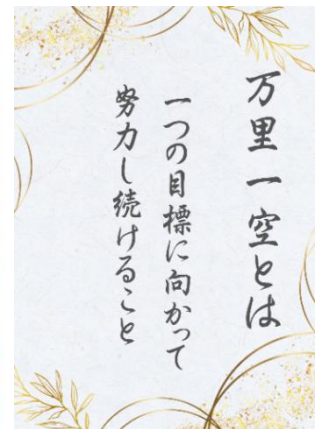 万里一空とは
一つの目標に向かって
努力し続けること